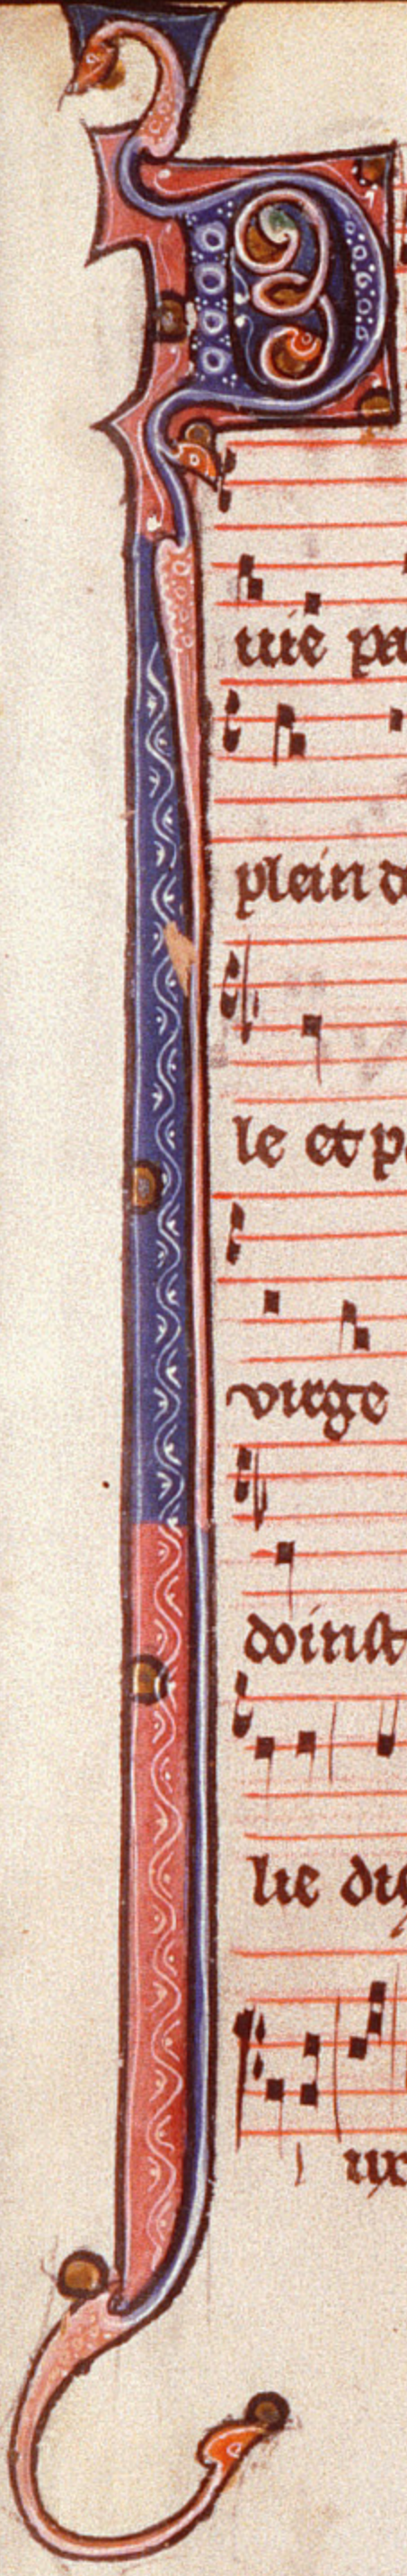 D
uie pa
plein d
le et p
virge
doinst
lie di